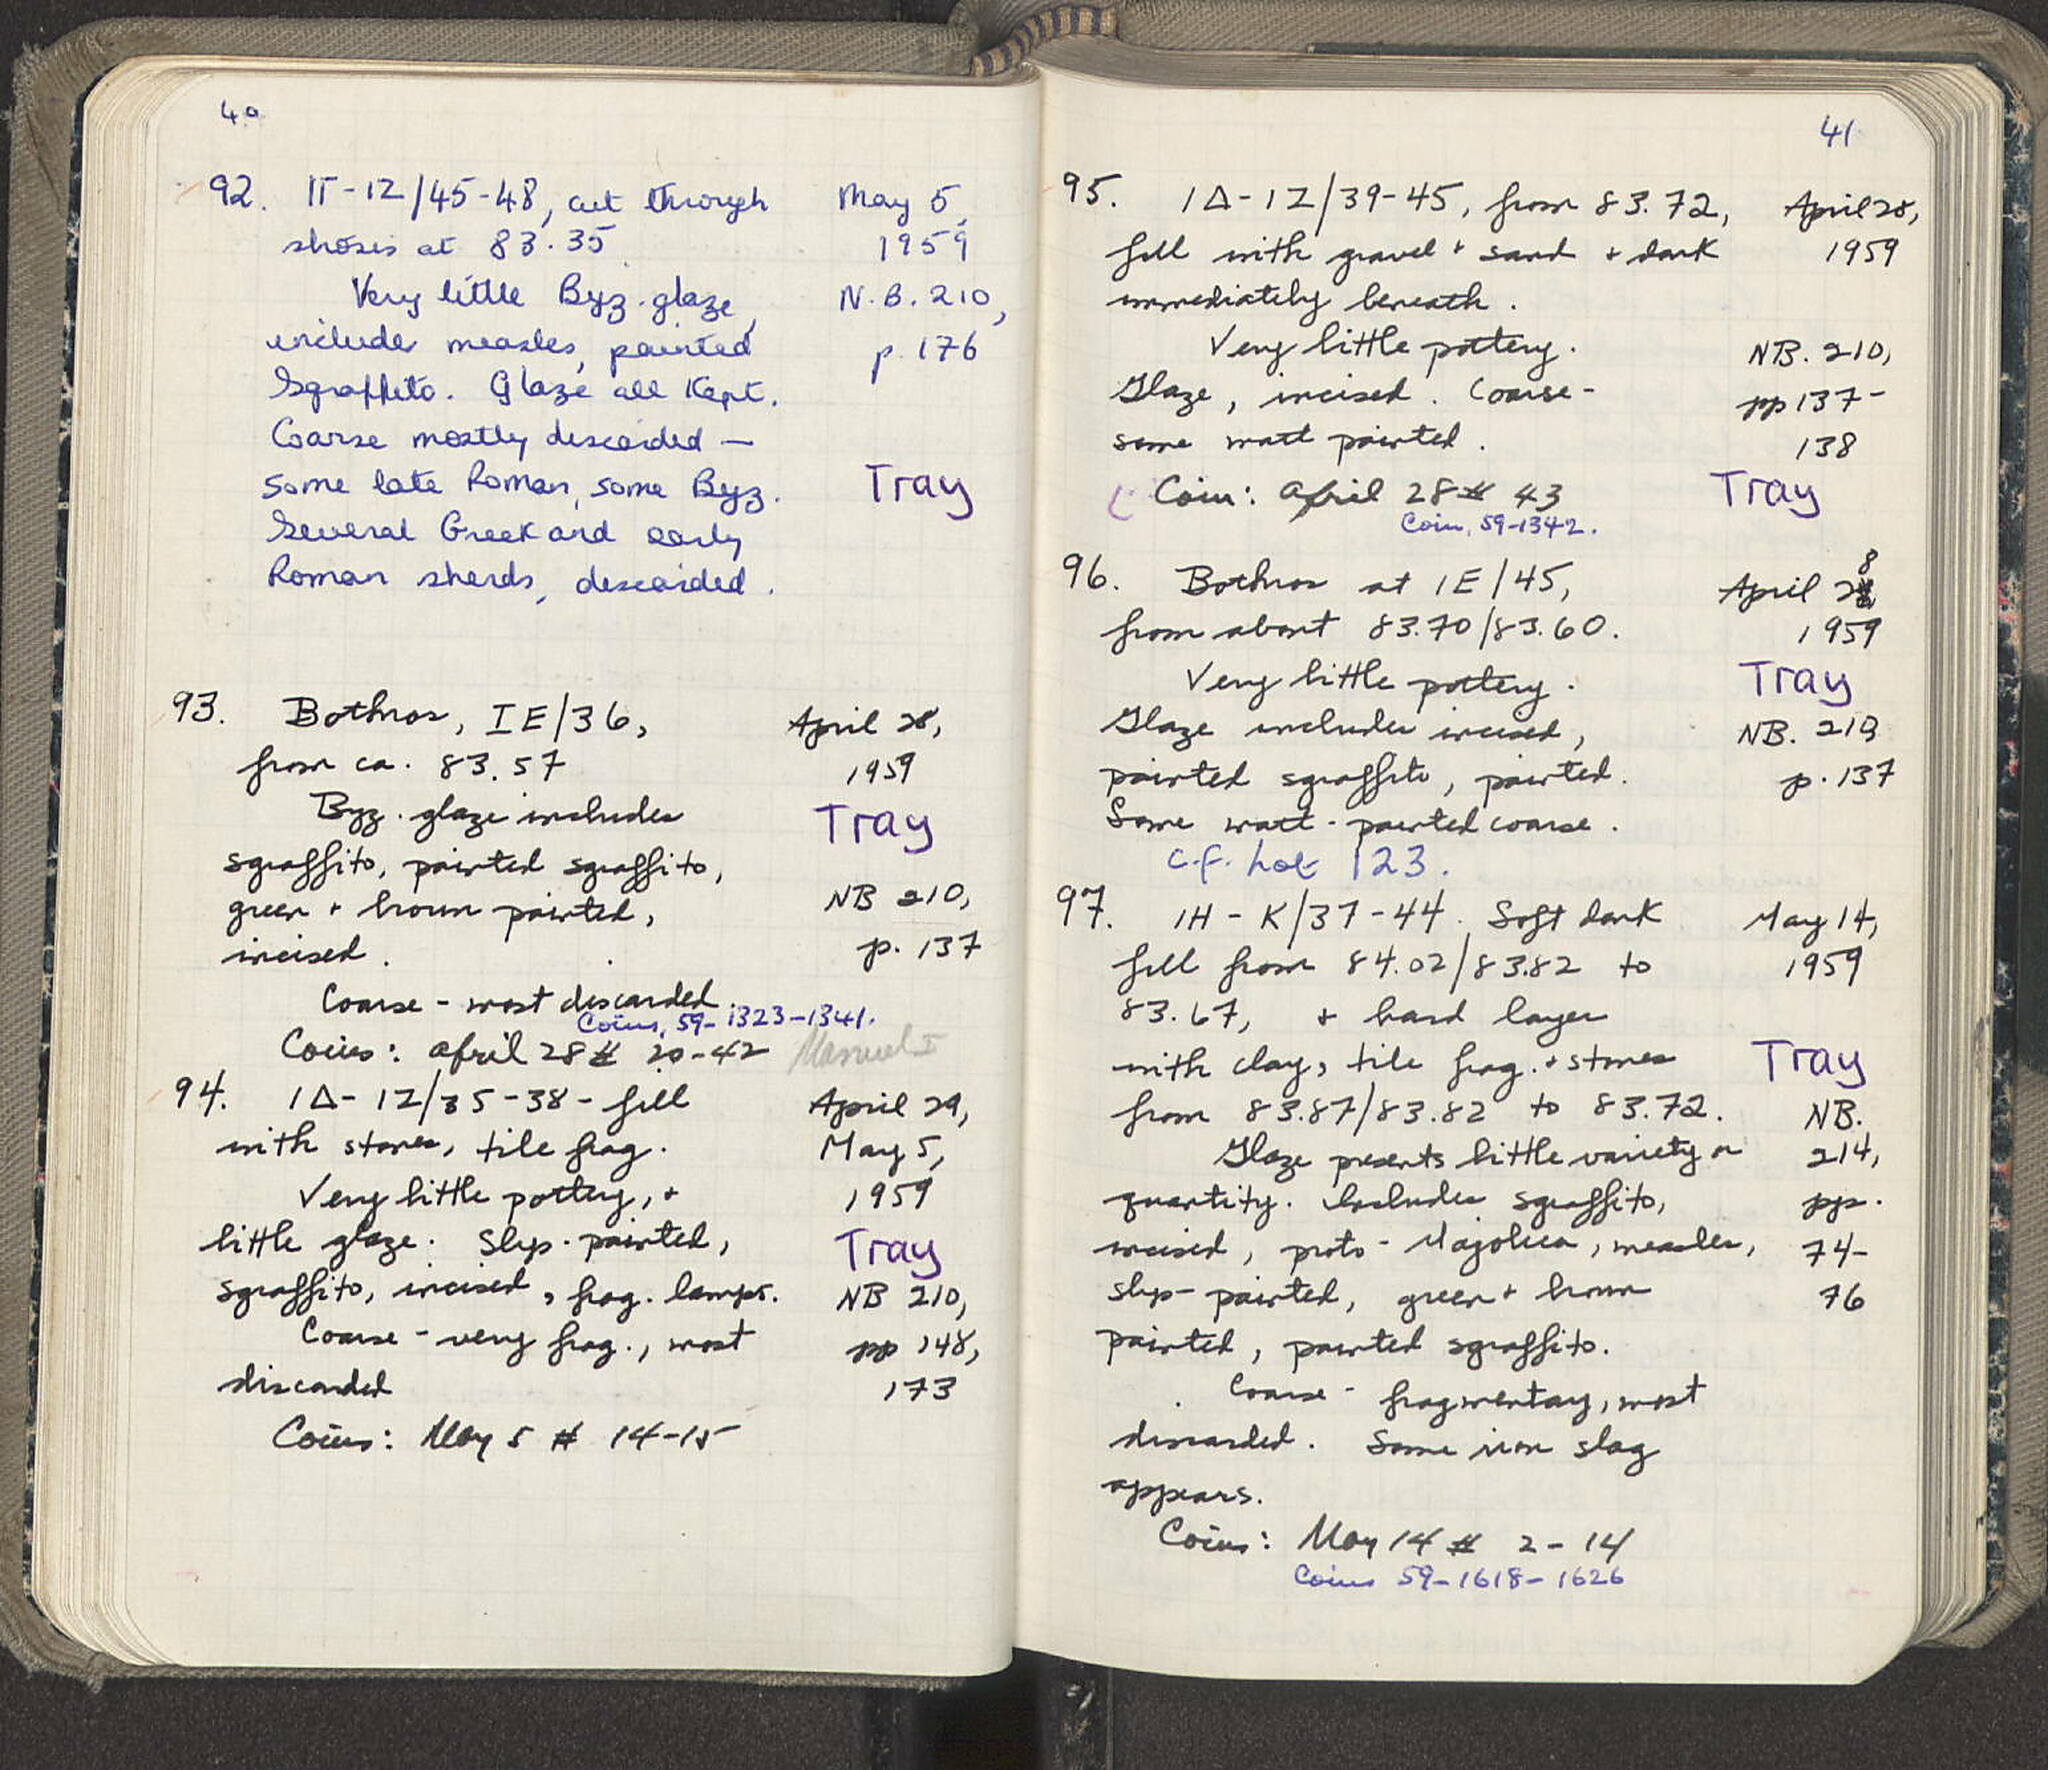 40
92. IΓ-IZ/45-48, cut through May 5,
strōsis at 83.35 1959
Very little Byz. glaze, N.B. 210,
include measles, painted p. 176
Sgraffito. Glaze all Kept.
Coarse mostly discarded —
some late Roman, some Byz. Tray
Several Greek and early
Roman sherds, discarded.
93. Bothros, IE/36, April 28,
from ca. 83.57 1959
Byz. glaze includes Tray
sgraffito, painted sgraffito,
green + brown painted, NB 210,
incised. p. 137
Coarse - most discarded.
Coins, 59-1323-1341.
Coins: April 28 # 20-42 Manuel I
94. IΔ-IZ/35-38 - fill April 29,
with stones, tile frag. May 5,
Very little pottery, + 1959
little glaze. Slip-painted, Tray
sgraffito, incised, frag. lamps. NB 210,
Coarse - very frag., most pp 148,
discarded 173
Coins: May 5 # 14-15
41
95. IΔ-IZ/39-45, from 83.72, April 28,
fill with gravel + sand + dark 1959
immediately beneath.
Very little pottery. NB. 210,
Glaze, incised. Coarse- pp 137-
some matt painted. 138
Coin: April 28 # 43 Tray
Coin, 59-1342.
96. Bothros at IE/45, April 28
from about 83.70/83.60. 1959
Very little pottery. Tray
Glaze includes incised, NB. 210
painted sgraffito, painted. p. 137
Some matt-painted coarse.
c.f. lot 123.
97. IH-K/37-44. Soft dark May 14,
fill from 84.02/83.82 to 1959
83.67, + hard layer
with clay, tile frag. + stones Tray
from 83.87/83.82 to 83.72. NB.
Glaze presents little variety or 214,
quantity. Includes sgraffito, pp.
incised, proto-Majolica, measles, 74-
slip-painted, green + brown 76
painted, painted sgraffito.
Coarse - fragmentary, most
discarded. Some iron slag
appears.
Coins: May 14 # 2-14
Coins 59-1618-1626